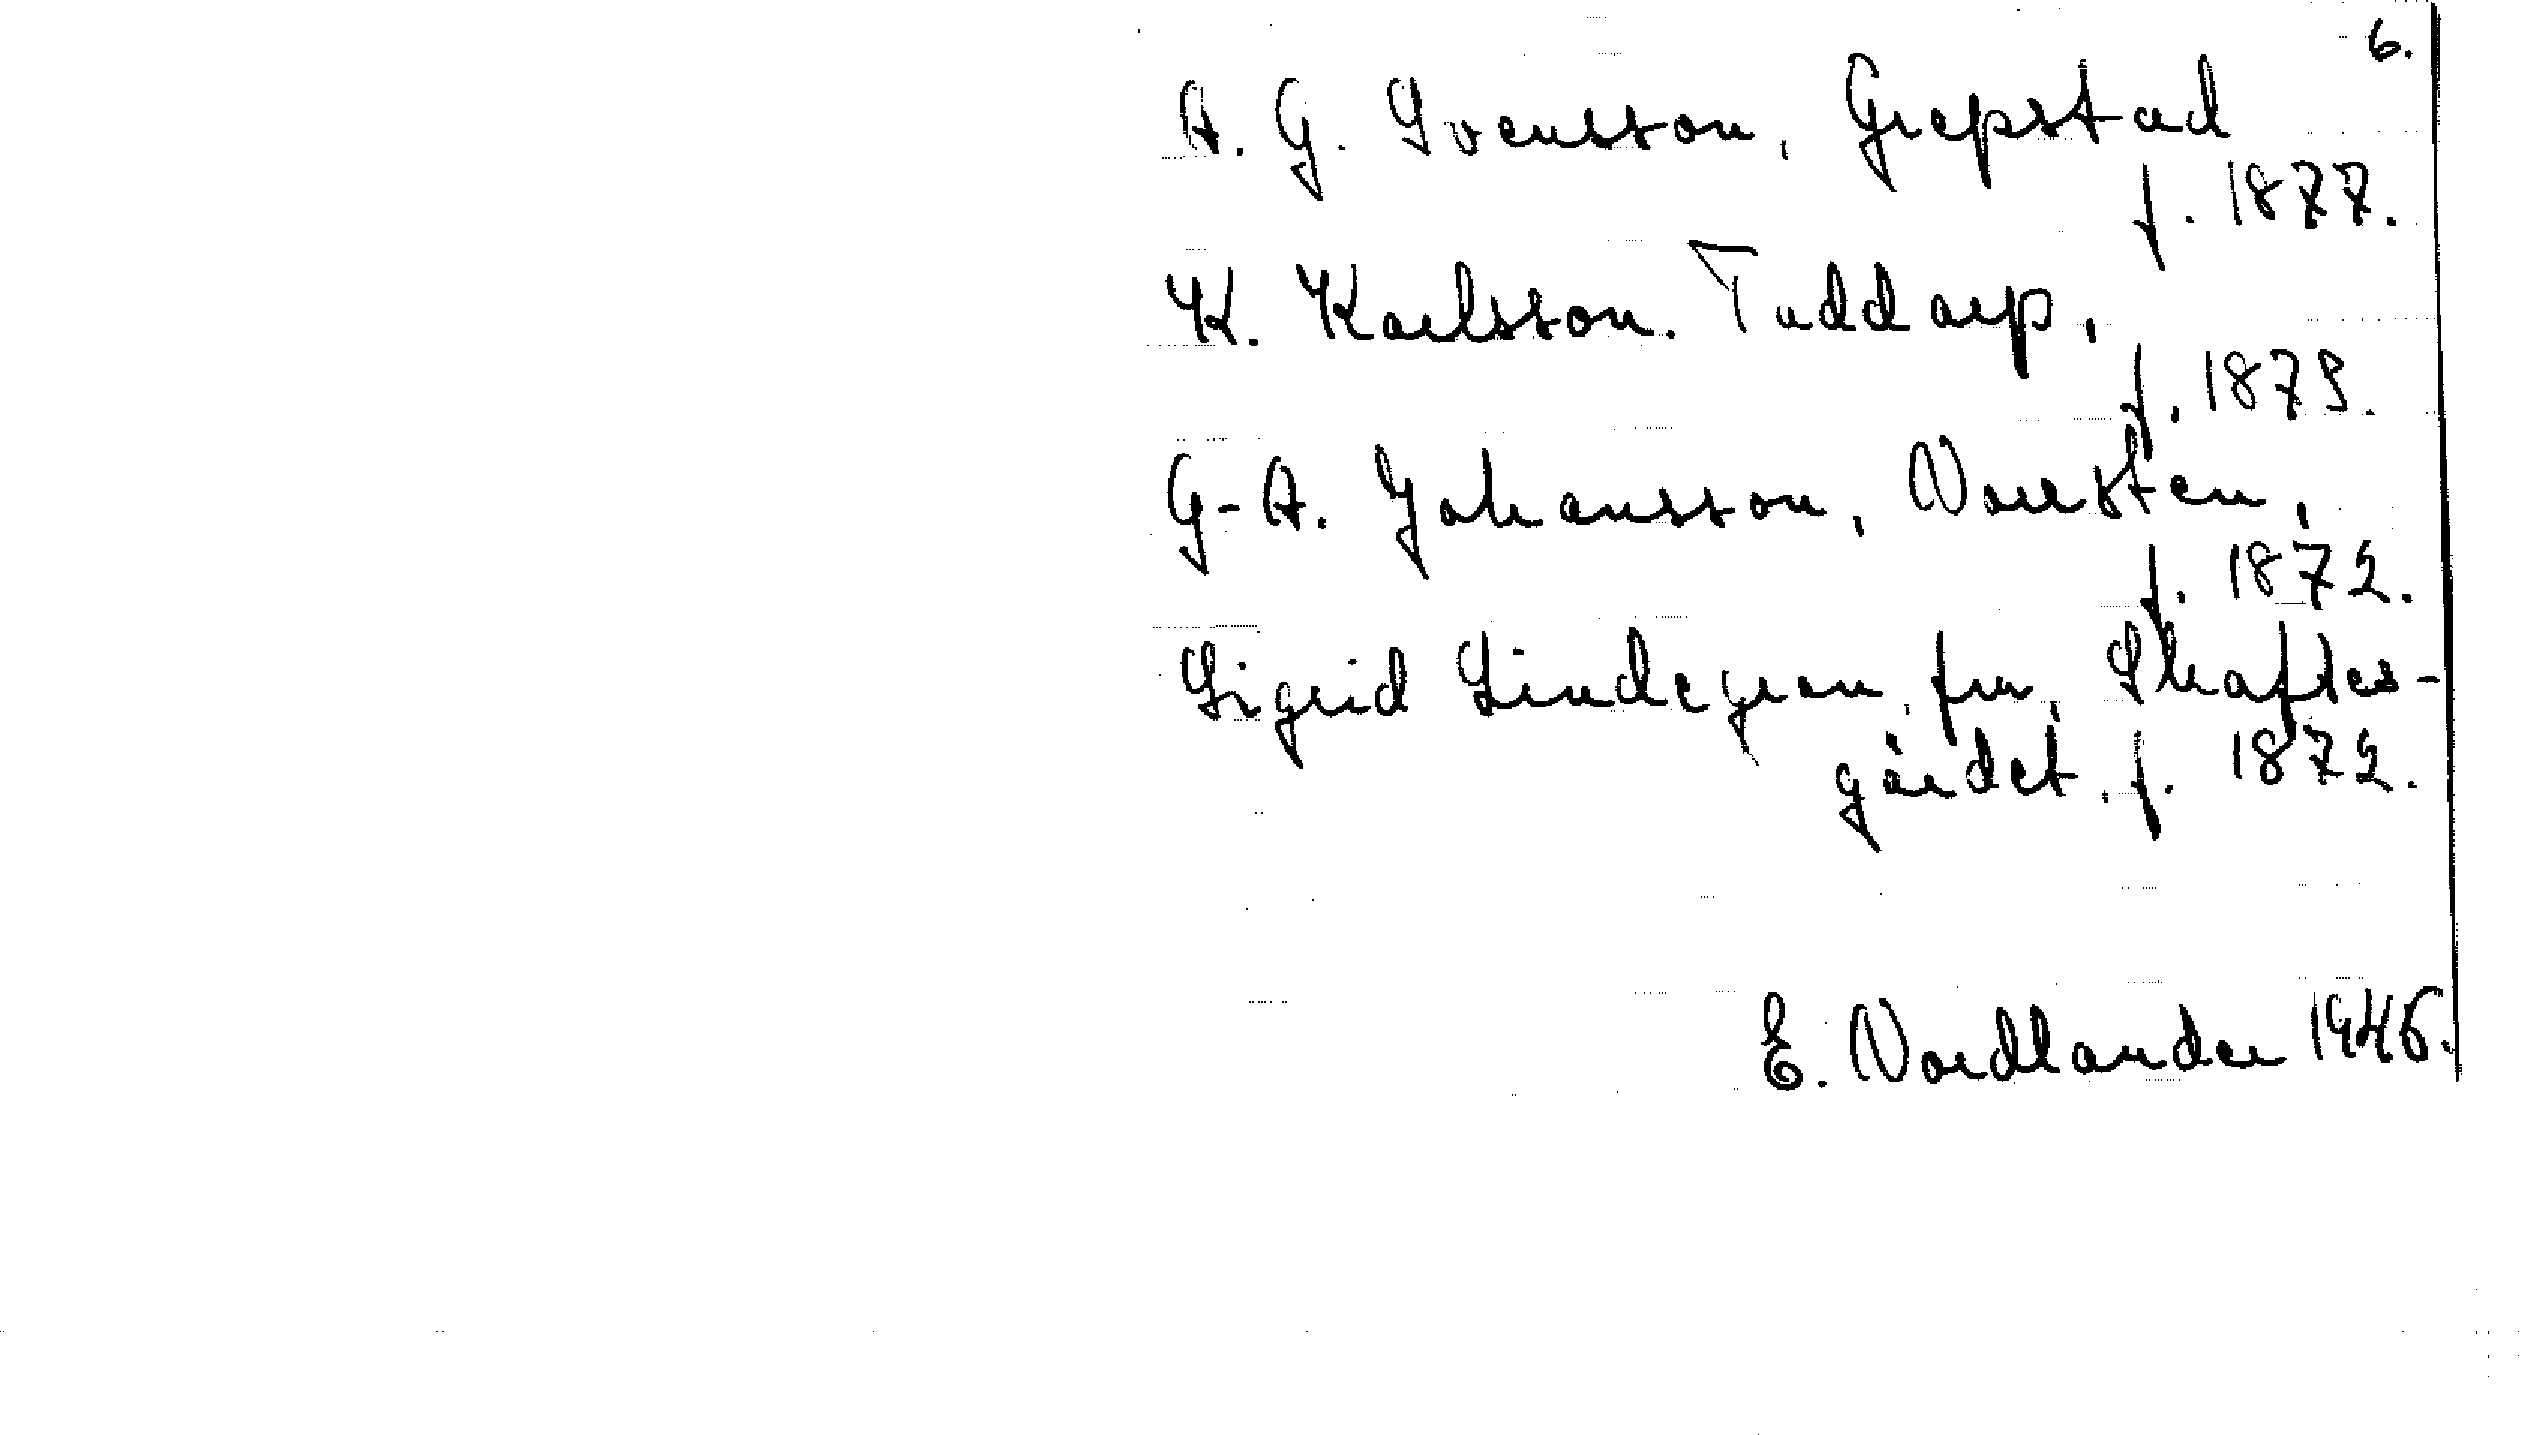 6.
A. G. Svensson, Grepstad
f. 1877.
K. Karlsson. Tuddarp,
f. 1879.
G-A. Johansson, Norsten,
f. 1872.
Sigrid Lindegren, fru, Skaftes-
gärdet, f. 1872.
E. Nordlander 1946.